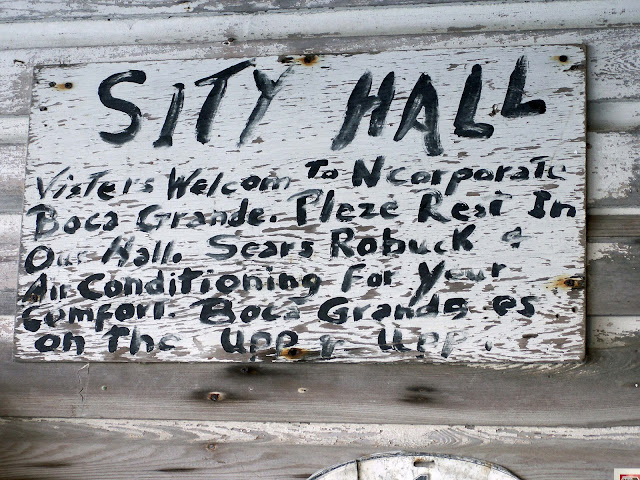 SITY HALL
Visters Welcom To Ncorporate
Boca Grande. Pleze Rest In
Our Hall. Sears Robuck &
Air Conditioning For Your
Comfort. Boca Grande es
on the upp & upp.